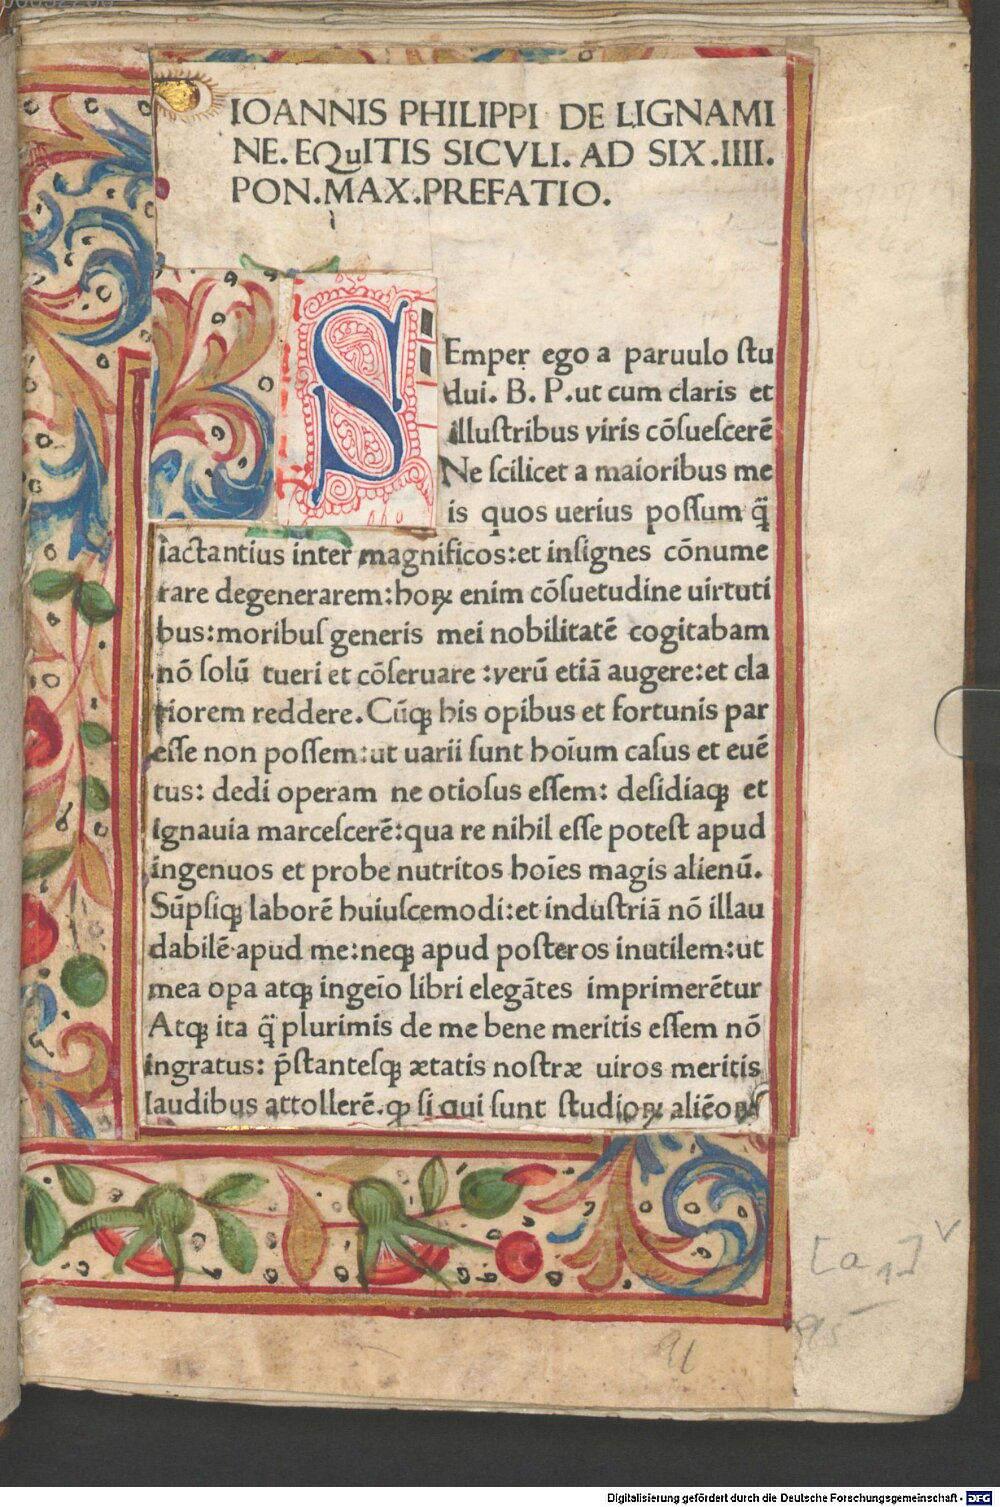 IOANNIS PHILIPPI DE LIGNAMI
NE. EQuITIS SICVLI. AD SIX .IIII.
PON.MAX.PREFATIO.
SEmper ego a paruulo ſtu
dui. B. P.ut cum claris et
illuſtribus viris cōſueſcerē
Ne ſcilicet a maioribus me
is quos uerius poſſum q̃
iactantius inter magnificos:et inſignes cōnume
rare degenerarem:hoꝝ enim cōſuetudine uirtuti
bus:moribuſ generis mei nobilitatē cogitabam
nō ſolū tueri et cōſeruare :verū etiā augere:et cla
riorem reddere. Cūqꝫ his opibus et fortunis par
eſſe non poſſem:ut uarii ſunt hoīum caſus et euē
tus: dedi operam ne otioſus eſſem: deſidiaqꝫ et
ignauia marceſcerē:qua re nihil eſſe poteſt apud
ingenuos et probe nutritos hoīes magis alienū.
Sūpſiqꝫ laborē huiuſcemodi:et induſtriā nō illau
dabilē apud me:neqꝫ apud poſteros inutilem:ut
mea opa atqꝫ ingeīo libri elegātes imprimerētur
Atqꝫ ita q̃ plurimis de me bene meritis eſſem nō
ingratus: p̄stanteſqꝫ ætatis noſtræ uiros meritis
laudibus attollerē.ꝙ ſi qui ſunt ſtudioꝝ aliēoꝝ
[a 1] v
95
91
Digitalisierung gefördert durch die Deutsche Forschungsgemeinschaft - DFG